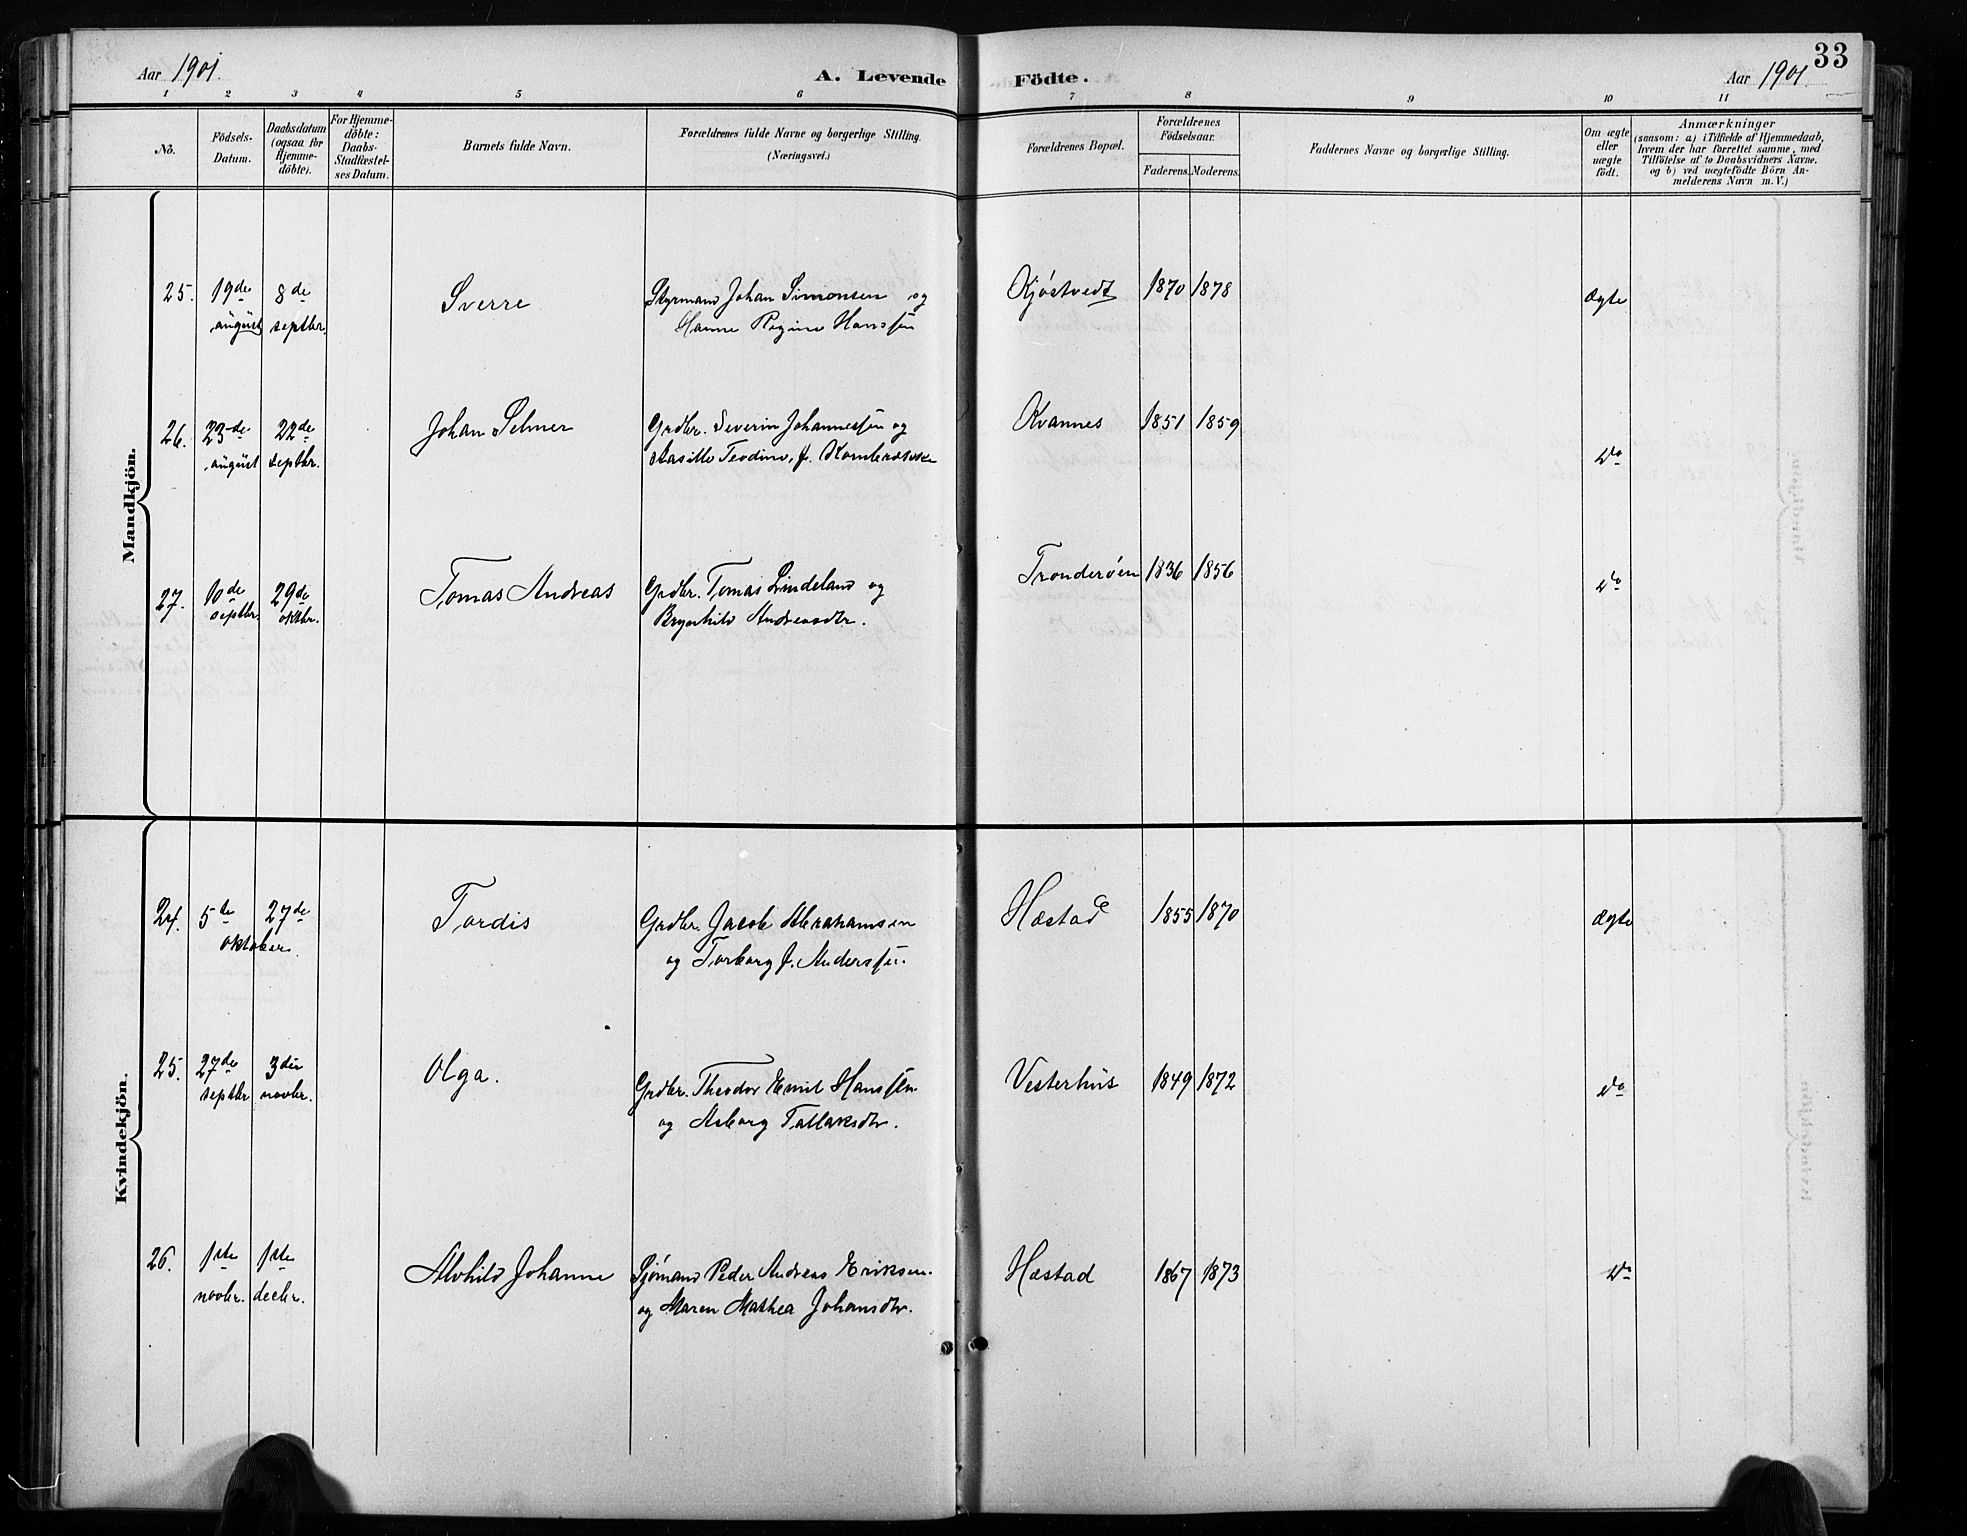 33
Aar 1901.
A. Levende Födte.
Aar 1901
1 2 3 4 5 6 7 8 9 10 11
No.
Födsels-Datum.
Daabsdatum (ogsaa for Hjemme-döbte).
For Hjemme-döbte: Daabs-Stadfæstel-ses Datum.
Barnets fulde Navn.
Forældrenes fulde Navne og borgerlige Stilling.
(Næringsvei.)
Forældrenes Bopæl.
Forældrenes Födselsaar.
Faderens. Moderens.
Faddernes Navne og borgerlige Stilling.
Om ægte eller uægte födt.
Anmærkninger
(saasom: a) i Tilfælde af Hjemmedaab,
hvem der har forrettet samme, med
Tilföielse af to Daabsvidners Navne,
og b) ved uægtefödte Börn An-
melderens Navn m. V.)
Mandkjön.
25. 19de 8de Sverre Styrmand Johan Simonsen og Kjøstvedt 1870 1878 Ægte
august septbr. Hanne Regine Hanssen
26. 23de 22de Johan Selmer Grdbr. Severin Johannessen og Kvannes 1851 1859 do
august septbr. Teodine
27. 10de 29de Tomas Andreas Grdbr. Tomas Lindeland og Tronderöen 1836 1856 do
septbr. oktbr. Brynhild Andreasdtr.
Kvindekjön.
24. 5te 27de Tordis Grdbr. Jacob Abrahamsen Hæstad 1855 1870 Ægte
oktober. og Torborg J. Anderssen.
25. 27de 3die Olga. Grdbr. Theodor Emil Hanssen Vesterhus 1849 1872 do
septbr novbr. og Asborg Tallaksdtr.
26. 1ste 1ste Alvhild Johanne Sjømand Peder Andreas Eriksen. Hæstad 1867 1873 do
novbr. decbr. og Maren Mathea Johansdtr.